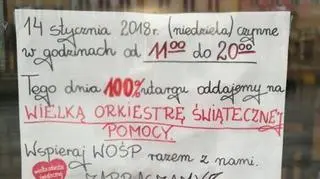 14 stycznia 2018r. (niedziela) czynne
w godzinach od 11⁰⁰ do 20⁰⁰
Tego dnia 100% utargu oddajemy na
WIELKĄ ORKIESTRĘ ŚWIĄTECZNEJ
POMOCY.
Wspieraj WOŚP razem z nami.